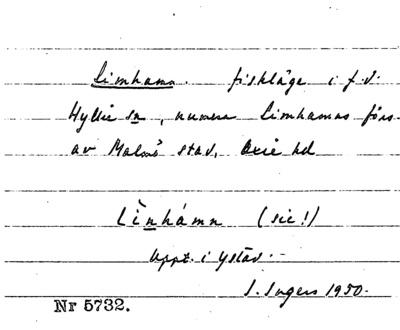 Limhamn. fiskläge i f.d.
Hyllie sn, numera Limhamns förs.
av Malmö stad, Oxie hd
Lìnhámn (sic!)
Uppt. i Ystad.
I. Ingers 1950.
Nr 5732.